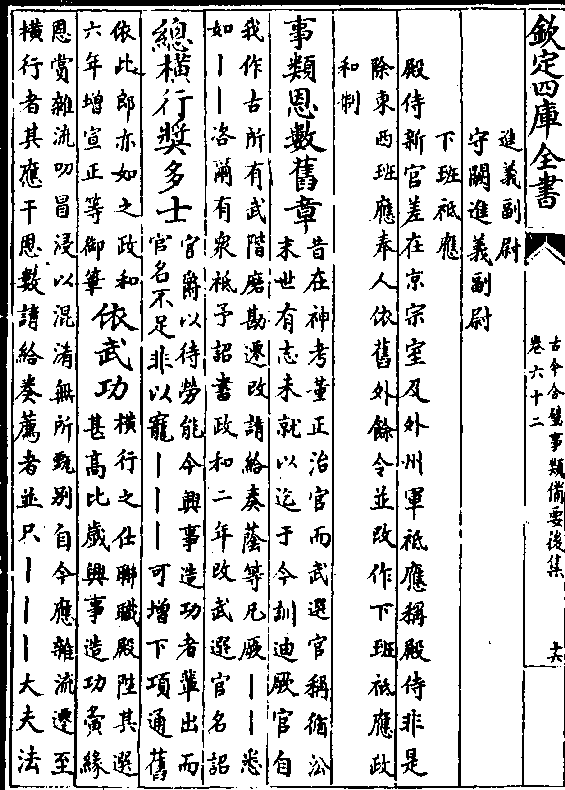 欽定四庫全書
古今合璧事類備要後集
卷六十二
十六
進義副尉
守闕進義副尉
下班祗應
殿侍新官差在京宗室及外州軍祗應稱殿侍非是
除東西班應奉人依舊外餘令並改作下班祗應政
和制
事類恩數舊章
昔在神考董正治官而武選官稱循㳂
末世有志未就以迄于今訓迪厥官自
我作古所有武階磨勘遷改請給奏蔭等凡厥丨丨悉
如丨丨咨爾有衆祗予詔書政和二年改武選官名詔
總橫行奬多士
官爵以待勞能今興事造功者輩出而
官名不足非以寵丨丨丨可增下項通舊
依此郎亦如之政和
六年增宣正等御筆
依武功
橫行之仕聯職殿陛其選
甚高比歲興事造功夤緣
恩賞雜流叨冒浸以混淆無所甄别自今應雜流遷至
橫行者其應干恩數請給奏薦者並只丨丨丨大夫法